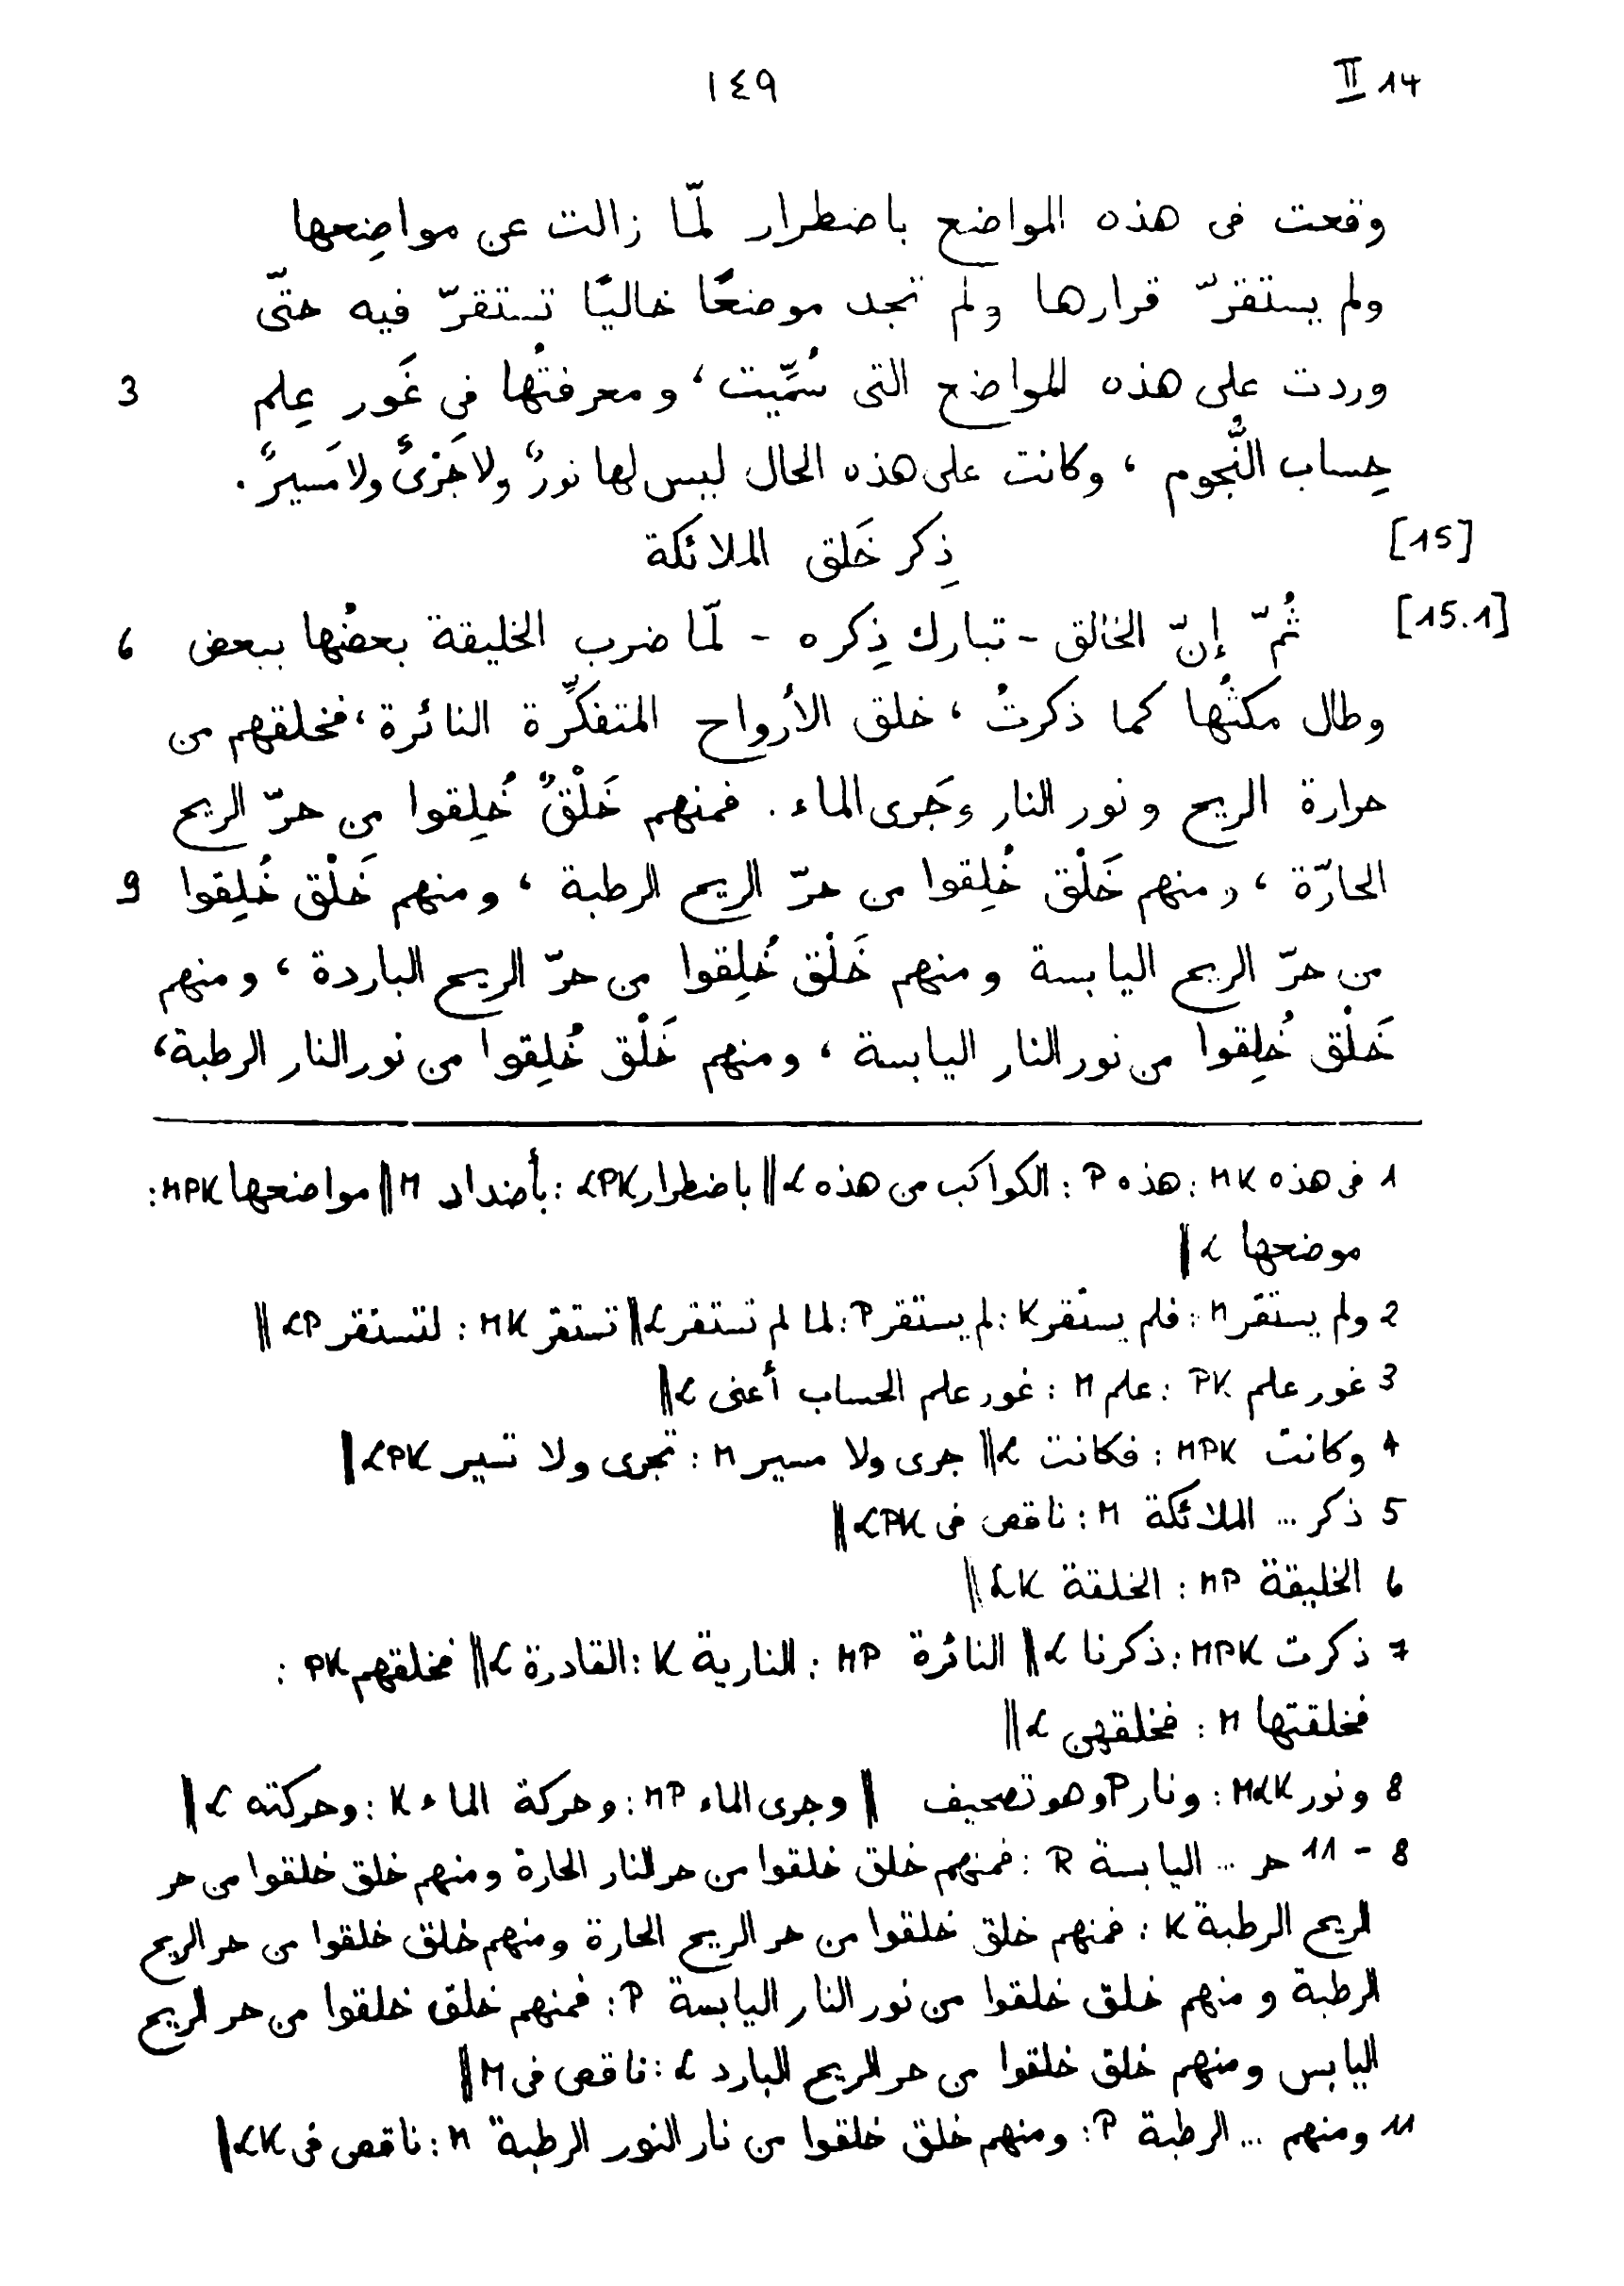 ١٤٩ II 14
وقعت فى هذه المواضع باضطرار لمّا زالت عن مواضِعها
ولم يستقرّ قرارها ولم تجد موضعًا خاليًا تستقرّ فيه حتّى
وردت على هذه المواضع التى سُمِّيت، ومعرفتُها فى غَور عِلم 3
حِساب النُّجوم، وكانت على هذه الحال ليس لها نورٌ ولا جَرْىٌ ولا مَسيرٌ.
[15] ذِكر خَلق الملائكة
[15.1] ثُمّ إنّ الخالق - تبارك ذِكره - لمّا ضرب الخليقة بعضُها ببعض 6
وطال مكثُها كما ذكرتُ، خلق الأرواح المتفكِّرة النائرة، فخلقهم من
حرارة الريح ونور النار وجَرى الماء. فمنهم خَلْقٌ خُلِقوا من حرّ الريح
الحارّة، ومنهم خَلْق خُلِقوا من حرّ الريح الرطبة، ومنهم خَلْق خُلِقوا 9
من حرّ الريح اليابسة ومنهم خَلْق خُلِقوا من حرّ الريح الباردة، ومنهم
خَلْق خُلِقوا من نور النار اليابسة، ومنهم خَلْق خُلِقوا من نور النار الرطبة،
1 فى هذه MK: هذه P: الكواكب من هذه L || باضطرار LPK: بأضداد M || مواضعها MPK:
موضعها L ||
2 ولم يستقر M: فلم يستقر K: لم يستقر P: لما لم تستقر L || تستقر MK: لتستقر LP ||
3 غور علم PK: علم M: غور علم الحساب أعنى L ||
4 وكانت MPK: فكانت L || جرى ولا مسير M: تجرى ولا تسير LPK ||
5 ذكر ... الملائكة M: ناقص فى LPK ||
6 الخليقة MP: الخلقة LK ||
7 ذكرت MPK: ذكرنا L || النائرة MP: النارية K: القادرة L || فخلقهم PK:
فخلقتها M: فخلقهن L ||
8 ونور MLK: ونار P وهو تصحيف || وجرى الماء MP: وحركة الماء K: وحركته L ||
8 - 11 حر ... اليابسة R: فمنهم خلق خلقوا من حر النار الحارة ومنهم خلق خلقوا من حر
الريح الرطبة K: فمنهم خلق خلقوا من حر الريح الحارة ومنهم خلق خلقوا من حر الريح
الرطبة ومنهم خلق خلقوا من نور النار اليابسة P: فمنهم خلق خلقوا من حر الريح
اليابس ومنهم خلق خلقوا من حر الريح البارد L: ناقص فى M ||
11 ومنهم ... الرطبة P: ومنهم خلق خلقوا من نار النور الرطبة M: ناقص فى LK ||